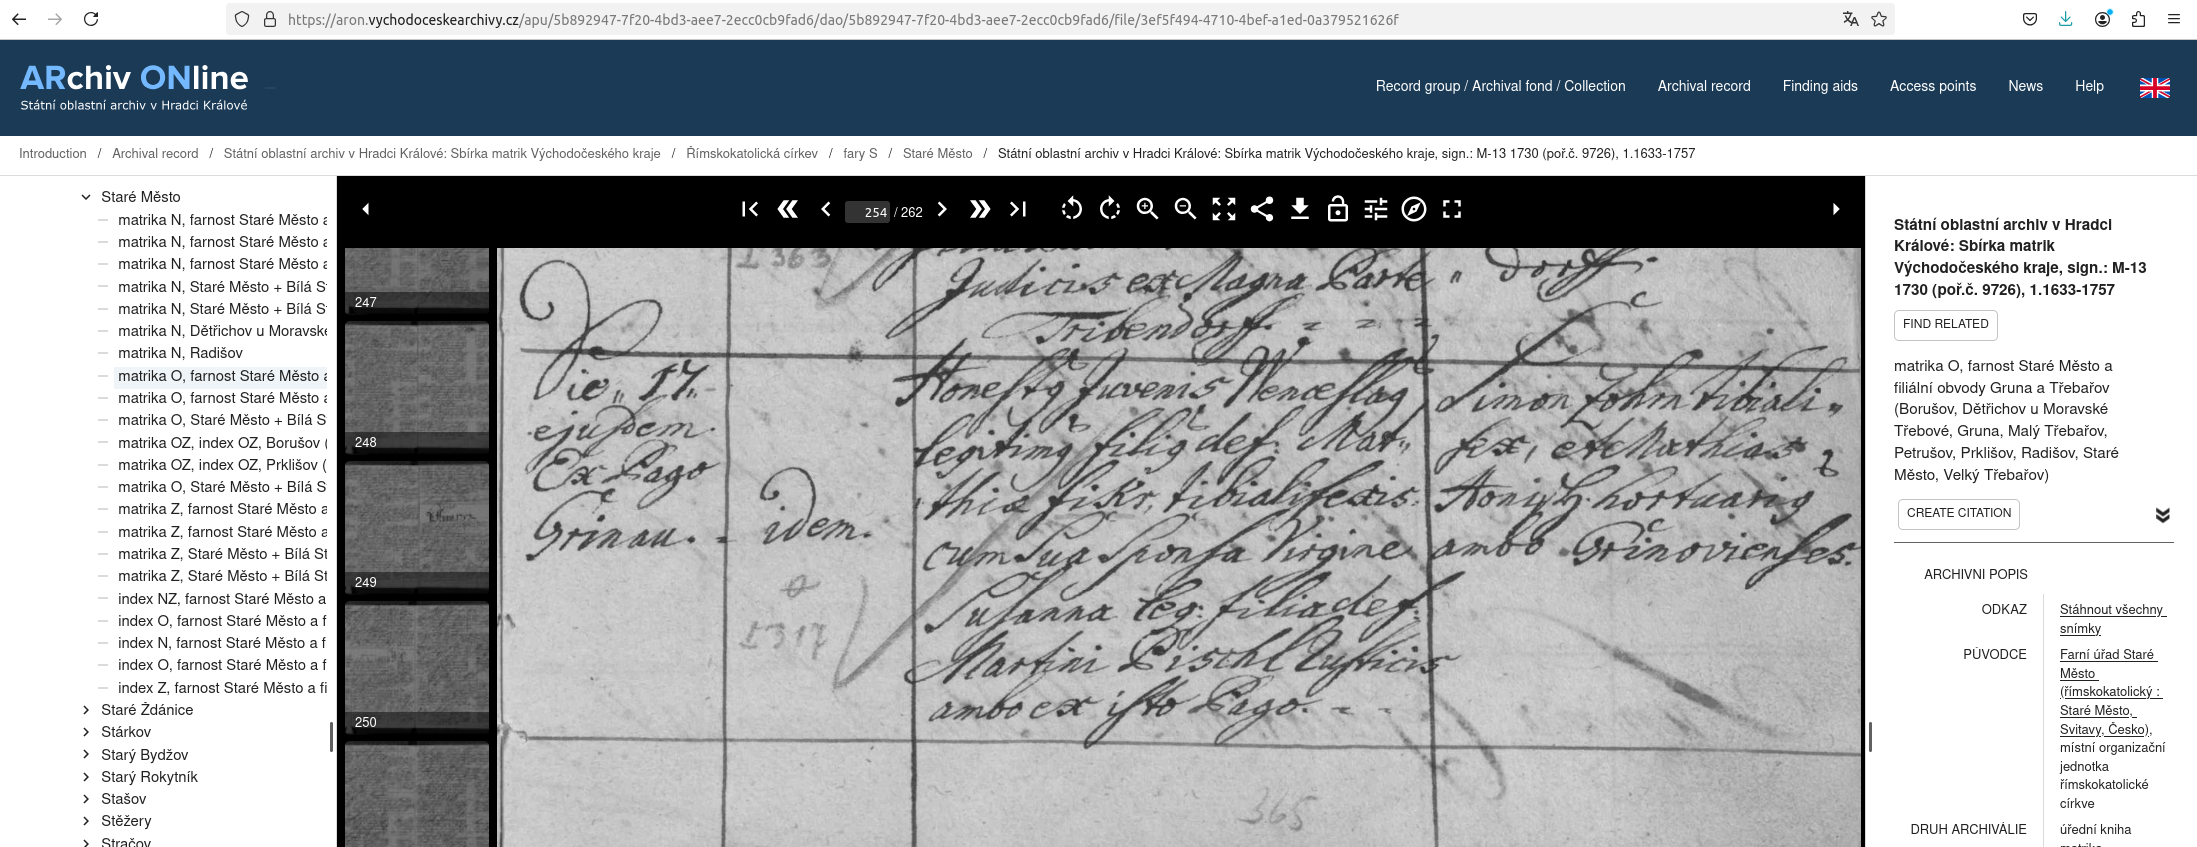 https://aron.vychodoceskearchivy.cz/apu/5b892947-7f20-4bd3-aee7-2ecc0cb9fad6/dao/5b892947-7f20-4bd3-aee7-2ecc0cb9fad6/file/3ef5f494-4710-4bef-a1ed-0a379521626f
ARchiv ONline
Státní oblastní archiv v Hradci Králové
Record group / Archival fond / Collection
Archival record
Finding aids
Access points
News
Help
Introduction / Archival record / Státní oblastní archiv v Hradci Králové: Sbírka matrik Východočeského kraje / Římskokatolická církev / fary S / Staré Město / Státní oblastní archiv v Hradci Králové: Sbírka matrik Východočeského kraje, sign.: M-13 1730 (poř.č. 9726), 1.1633-1757
Staré Město
matrika N, farnost Staré Město a
matrika N, farnost Staré Město a
matrika N, farnost Staré Město a
matrika N, Staré Město + Bílá St
matrika N, Staré Město + Bílá St
matrika N, Dětřichov u Moravské
matrika N, Radišov
matrika O, farnost Staré Město a
matrika O, farnost Staré Město a
matrika O, Staré Město + Bílá S
matrika OZ, index OZ, Borušov (
matrika OZ, index OZ, Prklišov (
matrika O, Staré Město + Bílá S
matrika Z, farnost Staré Město a
matrika Z, farnost Staré Město a
matrika Z, Staré Město + Bílá St
matrika Z, Staré Město + Bílá St
index NZ, farnost Staré Město a
index O, farnost Staré Město a f
index N, farnost Staré Město a f
index O, farnost Staré Město a f
index Z, farnost Staré Město a fi
Staré Ždánice
Stárkov
Starý Bydžov
Starý Rokytník
Stašov
Stěžery
Stračov
254 / 262
247
248
249
250
363
Judicis ex Magna Parte " dorff.
Tribendorff
Die 17.
ejusdem.
Ex Pago
Grinau.
idem.
317
Honestg Juvenis Wenceslag
legitimg filig def: Mat-
thiæ fikr, tibialifexis.
cum sua Sponsa Virgine
Susanna leg: filia def:
Martini Pischl Rusticis
ambo ex isto Pago.
Simon Zohm tibiali-
fex, et Mathias
hortuario
ambo Grinovienses.
365
Státní oblastní archiv v Hradci
Králové: Sbírka matrik
Východočeského kraje, sign.: M-13
1730 (poř.č. 9726), 1.1633-1757
FIND RELATED
matrika O, farnost Staré Město a
filiální obvody Gruna a Třebařov
(Borušov, Dětřichov u Moravské
Třebové, Gruna, Malý Třebařov,
Petrušov, Prklišov, Radišov, Staré
Město, Velký Třebařov)
CREATE CITATION
ARCHIVNI POPIS
ODKAZ
Stáhnout všechny
snímky
PŮVODCE
Farní úřad Staré
Město
(římskokatolický :
Staré Město,
Svitavy, Česko),
místní organizační
jednotka
římskokatolické
církve
DRUH ARCHIVÁLIE
úřední kniha
matrika